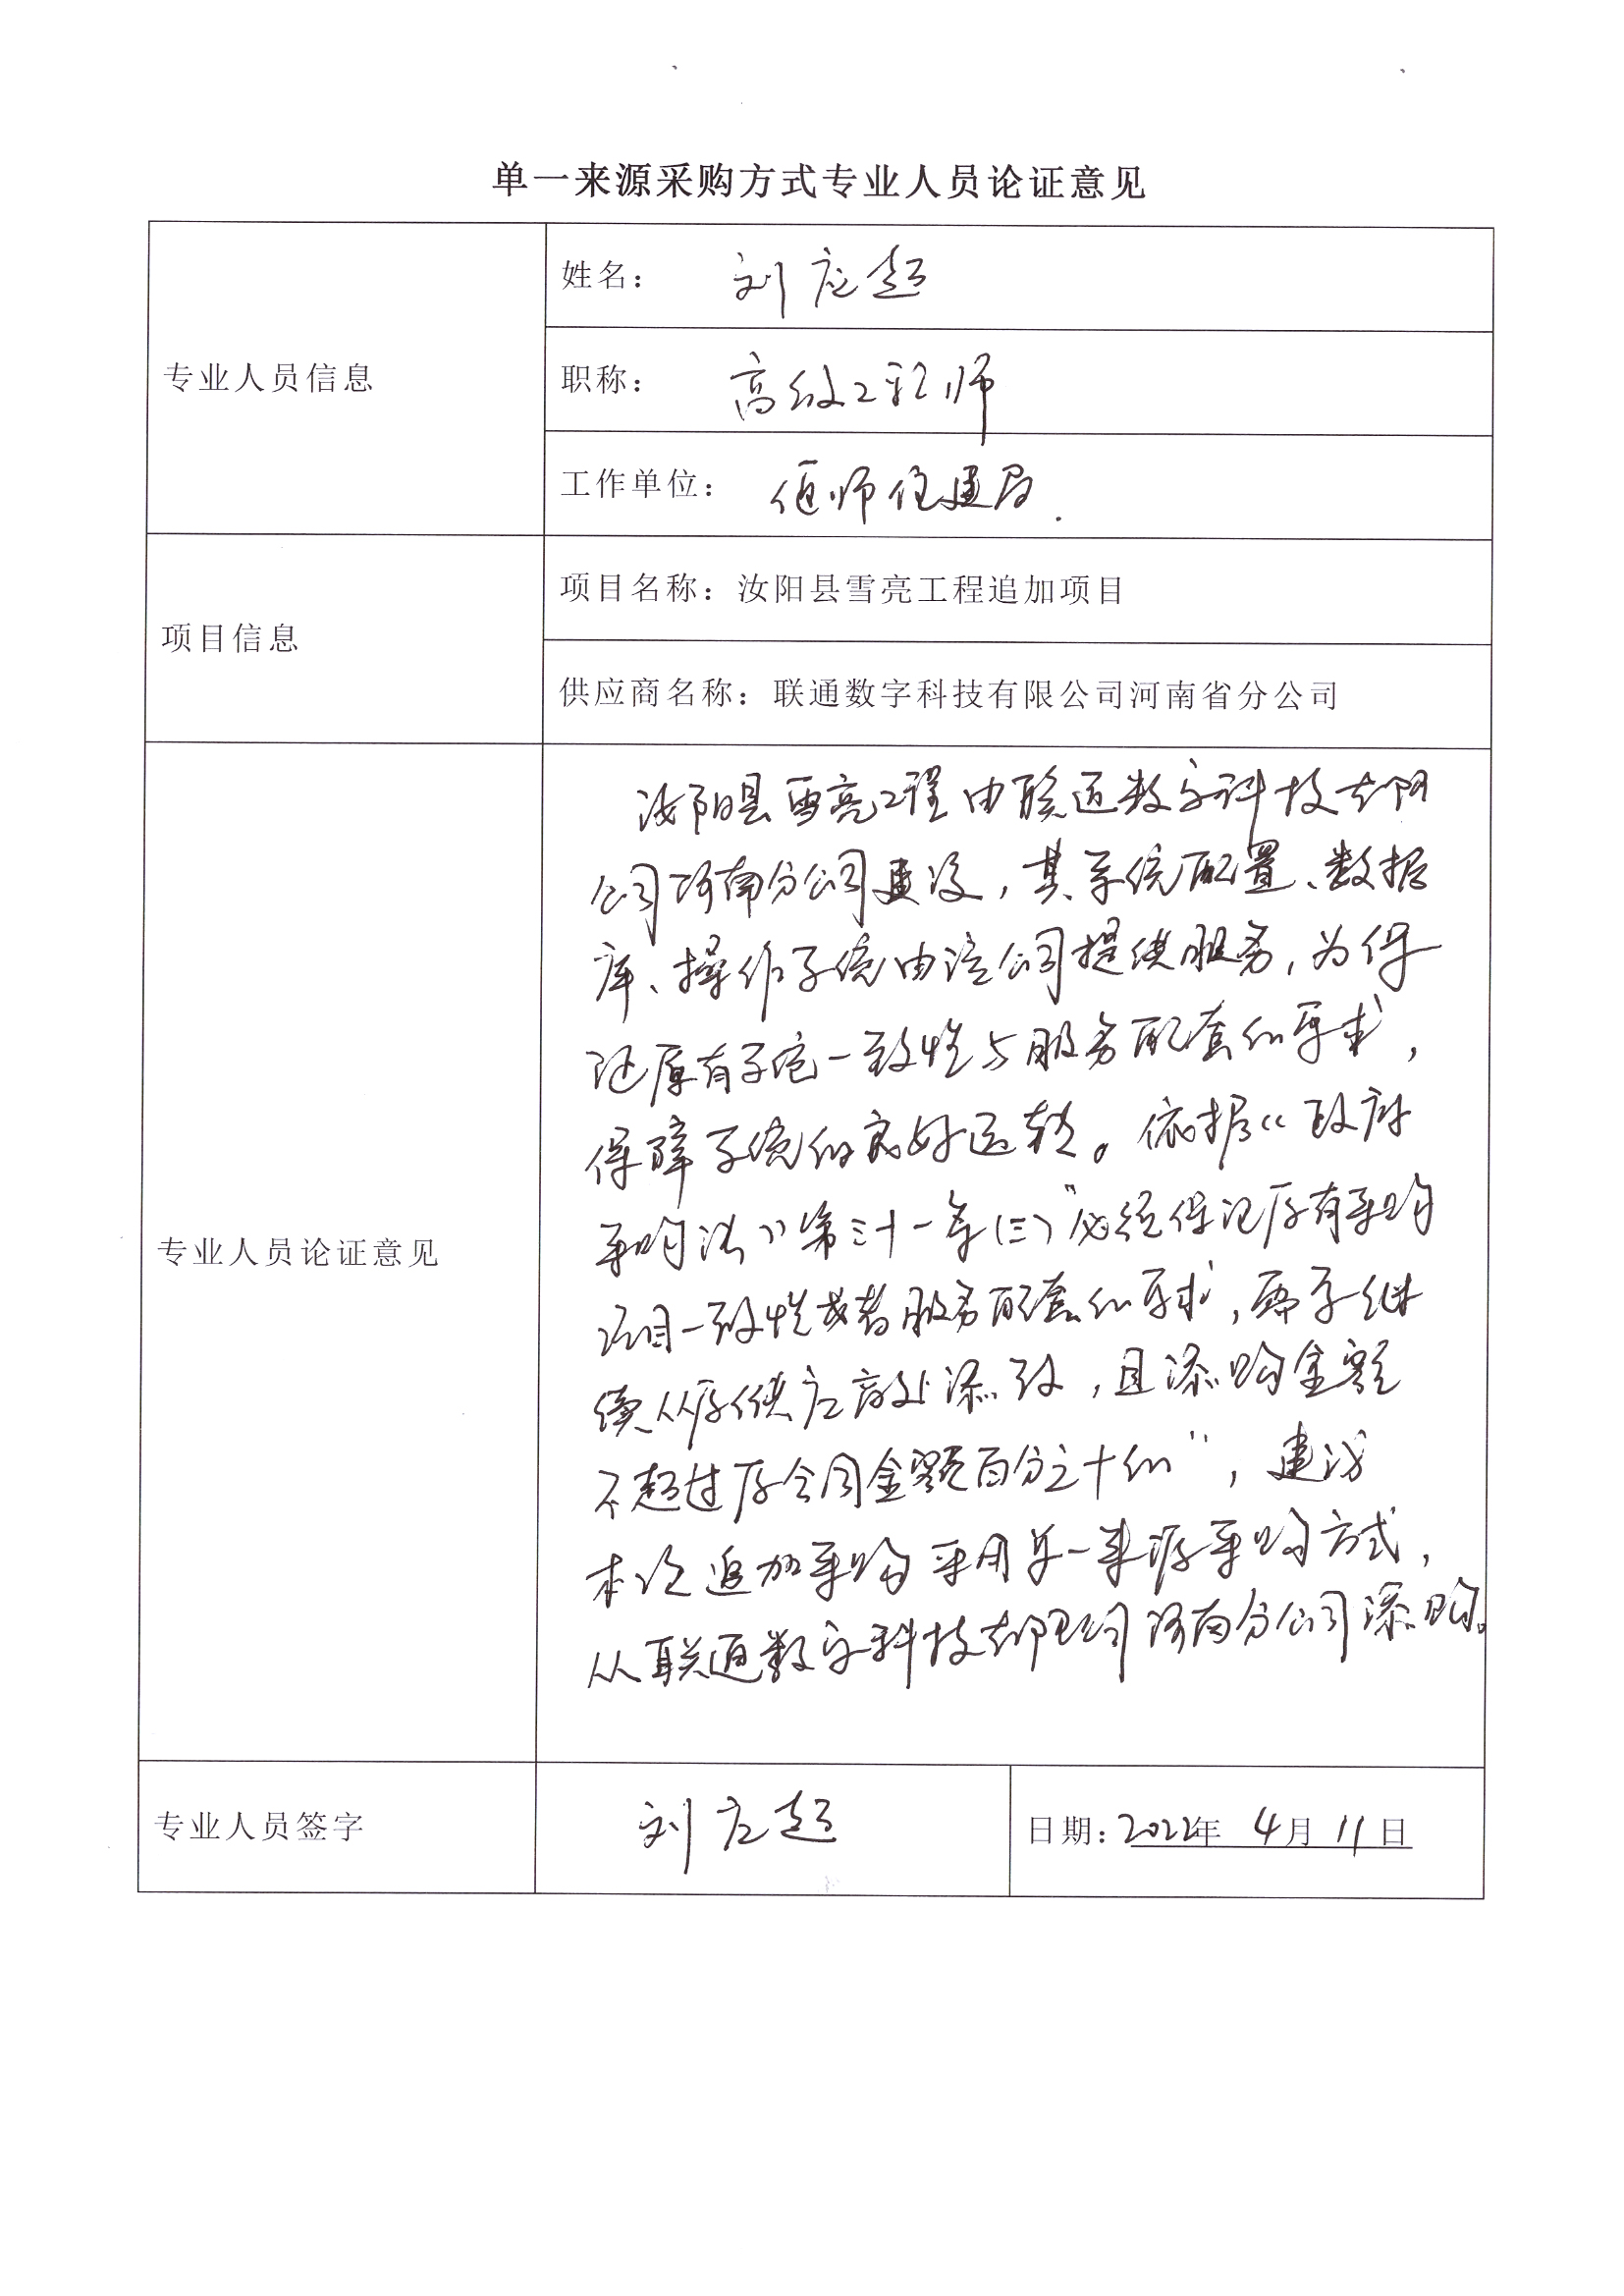 单一来源采购方式专业人员论证意见
专业人员信息
姓名： 刘应超
职称： 高级工程师
工作单位： 偃师住建局.
项目信息
项目名称：汝阳县雪亮工程追加项目
供应商名称：联通数字科技有限公司河南省分公司
专业人员论证意见
汝阳县雪亮工程由联通数字科技有限
公司河南分公司建设，其系统配置、数据
库、操作系统由该公司提供服务，为保
证原有系统一致性与服务配套的要求，
保障系统的良好运转。依据《政府
采购法》第三十一条(三)"必须保证原有采购
项目一致性或者服务配套的要求，需要继
续从原供应商处添购，且添购金额
不超过原合同金额百分之十的"，建议
本次追加采购采用单一来源采购方式，
从联通数字科技有限公司河南分公司添购。
专业人员签字
刘应超
日期：2022年 4月 11日